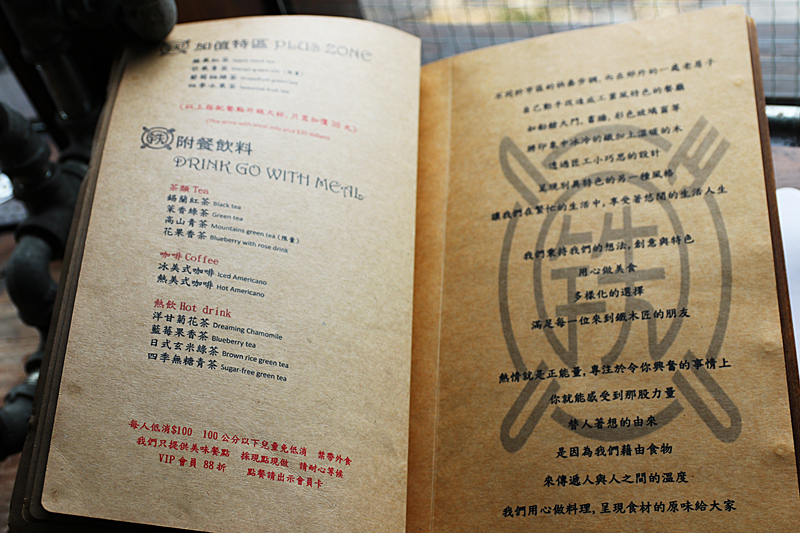 加值特區 PLUS ZONE
蘋果紅茶 Apple black tea
(以上搭配餐點外縫大杯, 只需加價 30 元)
鉄 附餐飲料
DRINK GO WITH MEAL
茶類 Tea
錫蘭紅茶 Black tea
茉香綠茶 Green tea
高山青茶 Mountains green tea (限量)
花果香茶 Blueberry with rose drink
咖啡 Coffee
冰美式咖啡 Iced Americano
熱美式咖啡 Hot Americano
熱飲 Hot drink
洋甘菊花茶 Dreaming Chamomile
藍莓果香茶 Blueberry tea
日式玄米綠茶 Brown rice green tea
四季無糖青茶 Sugar-free green tea
每人低消$100 100公分以下兒童免低消 禁帶外食
我們只提供美味餐點 採現點現做 請耐心等候
VIP會員 88折 點餐請出示會員卡
不同於市區的快奏步調, 而在郊外的一處老房子
自己動手改造成工業風特色的餐廳
如船艙大門, 書牆, 彩色玻璃窗等
將印象中冰冷的鐵加上溫暖的木
透過匠工小巧思的設計
呈現別具特色的另一種風格
讓我們在繁忙的生活中, 享受著悠閒的生活人生
我們秉持我們的想法, 創意與特色
用心做美食
多樣化的選擇
滿足每一位來到鐵木匠的朋友
熱情就是正能量, 專注於令你興奮的事情上
你就能感受到那股力量
替人著想的由來
是因為我們藉由食物
來傳遞人與人之間的溫度
我們用心做料理, 呈現食材的原味給大家
鉄